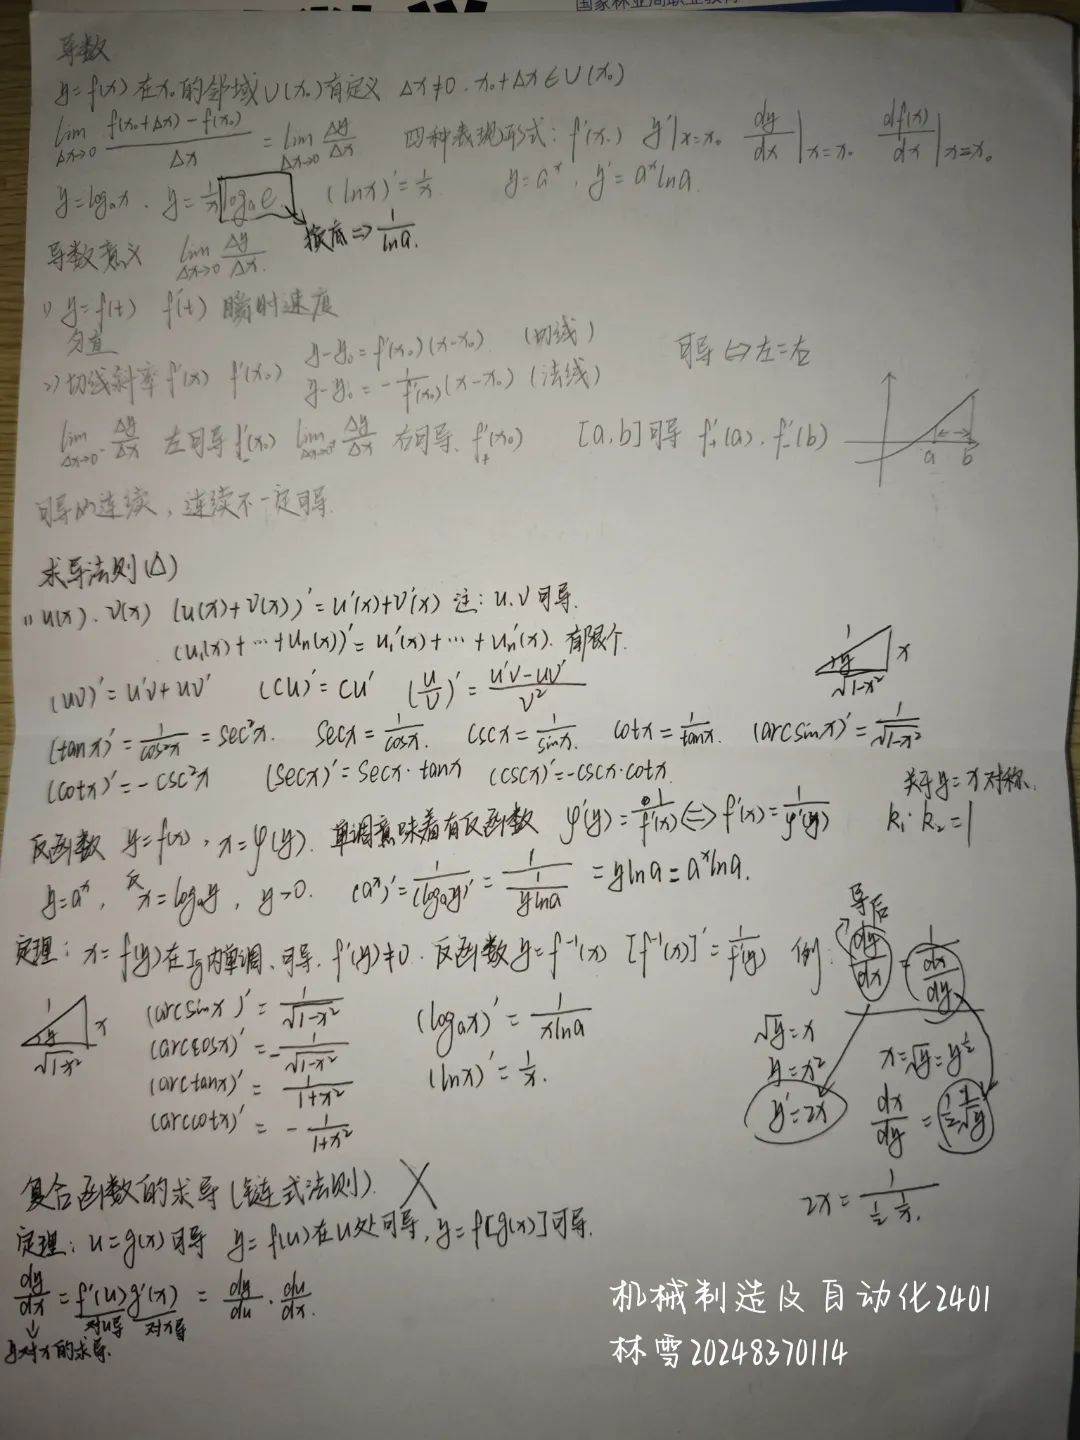 国家林业局职业教育
导数
y=f(x)在x₀的邻域U(x₀)有定义 Δx≠0. x₀+Δx∈U(x₀)
lim Δx→0 (f(x₀+Δx)-f(x₀))/Δx = lim Δx→0 Δy/Δx 四种表现形式: f'(x₀) y'|x=x₀ dy/dx|x=x₀ df(x)/dx|x=x₀
y=logₐx. y'=1/x logₐe (lnx)'=1/x y=aˣ, y'=aˣlna.
换底⇒1/lna.
导数意义 lim Δx→0 Δy/Δx.
1) y=f(t) f'(t) 瞬时速度
2) 切线斜率 f'(x) f'(x₀) y-y₀=f'(x₀)(x-x₀) (切线)
y-y₀=-1/f'(x₀)(x-x₀) (法线)
可导⇔左=右
lim Δx→0⁻ Δy/Δx 左可导f'₋(x₀) lim Δx→0⁺ Δy/Δx 右可导. f'₊(x₀) [a,b]可导 f'₊(a). f'₋(b)
a b
可导必连续, 连续不一定可导.
求导法则(Δ)
1) u(x). v(x) (u(x)+v(x))'=u'(x)+v'(x) 注: u.v可导.
(u₁(x)+⋯+uₙ(x))'=u₁'(x)+⋯+uₙ'(x). 有限个.
1 x y √1-x²
(uv)'=u'v+uv' (cu)'=cu' (u/v)'=(u'v-uv')/v²
(tanx)'=1/cos²x=sec²x. secx=1/cosx. cscx=1/sinx. cotx=1/tanx. (arcsinx)'=1/√1-x²
(cotx)'=-csc²x (secx)'=secx·tanx (cscx)'=-cscx·cotx.
关于y=x对称.
反函数 y=f(x), x=φ(y). 单调意味着有反函数 φ'(y)=1/f'(x)⇔f'(x)=1/φ'(y) k₁·k₂=1
y=aˣ, 反x=logₐy, y>0. (aˣ)'=1/(logₐy)'=1/(1/(ylna))=ylna=aˣlna.
定理: x=f(y)在Iy内单调、可导. f'(y)≠0. 反函数y=f⁻¹(x) [f⁻¹(x)]'=1/f'(y) 例: dy/dx=1/(dx/dy)
导后
1 x y √1-x²
(arcsinx)'=1/√1-x²
(arccosx)'=-1/√1-x²
(arctanx)'=1/1+x²
(arccotx)'=-1/1+x²
(logₐx)'=1/xlna
(lnx)'=1/x.
√y=x
y=x²
y'=2x
x=√y=y^½
dx/dy=½ 1/√y
2x=1/(½ 1/x).
复合函数的求导(链式法则). X
定理: u=g(x)可导 y=f(u)在u处可导, y=f[g(x)]可导.
dy/dx=f'(u)g'(x)=dy/du·du/dx.
对u导 对x导
y对x的求导.
机械制造及自动化2401
林雪20248370114